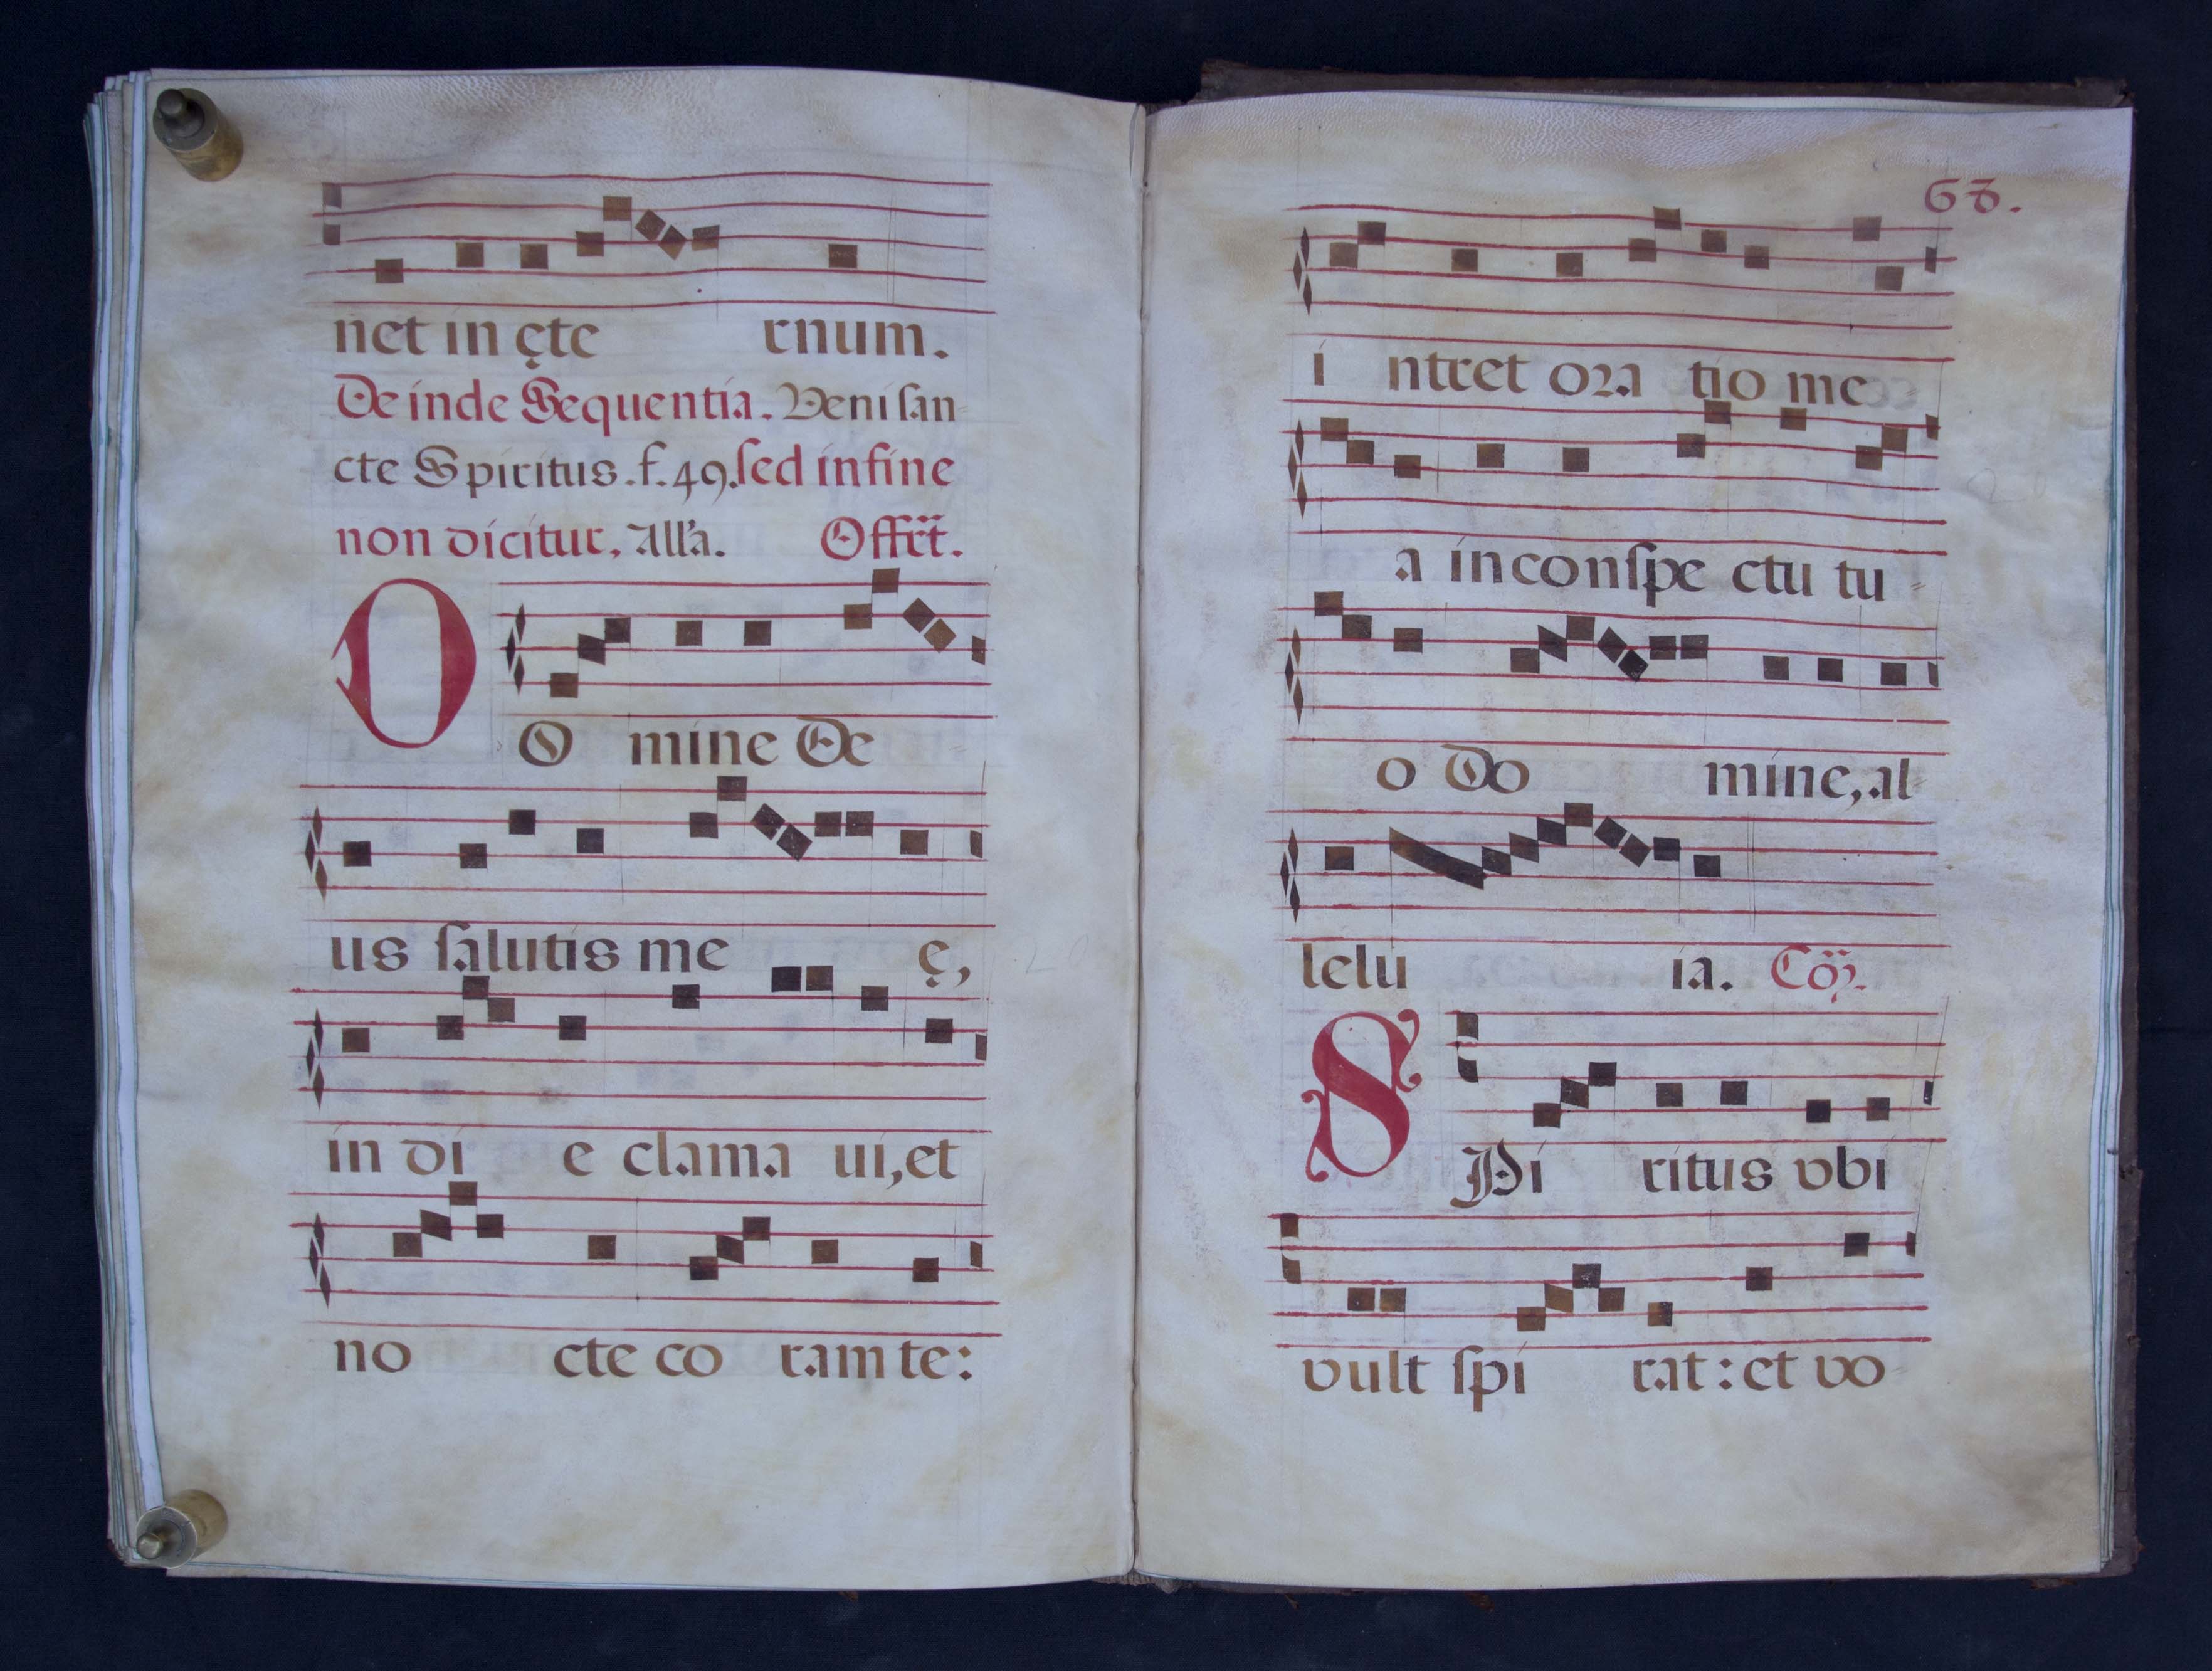 net in ęte rnum.
De inde Sequentia. Veni ſan
cte Spiritus. f. 49. ſed in fine
non dicitur, All'a. Offrt.
O
O mine De
us ſalutis me ę,
in di e clama ui, et
no cte co ram te:
68.
i ntret ora tio me
a in conſpe ctu tu
o Do mine, al
lelu ia. Cõ.
S
Pi ritus vbi
vult ſpi rat: et vo